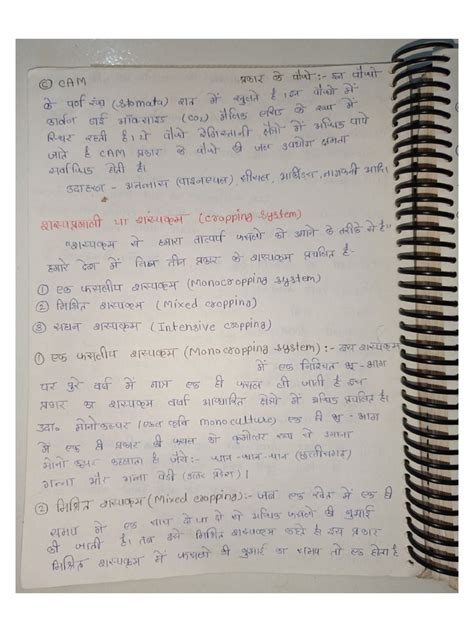 © CAM प्रकार के पौधे :- इन पौधों
के पर्ण रंध्र (Stomata) रात में खुलते है। इन पौधों में
कार्बन डाई ऑक्साइड (CO₂) मैलिक एसिड के रूप में
स्थिर रहती है। ये पौधे रेगिस्तानी क्षेत्रो में अधिक पाये
जाते है CAM प्रकार के पौधों की जल उपयोग क्षमता
सर्वाधिक होती है।
उदाहरन - अनानास (पाइनएपल), सीसल, आर्किड्स, नागफनी आदि।
शस्यप्रणाली या शस्यक्रम (Cropping System)
शस्यक्रम से हमारा तात्पर्य फसलो को उगाने के तरीके से है-
हमारे देश में निम्न तीन प्रकार के शस्यक्रम प्रचलित है-
① एक फसलीय शस्यक्रम (Monocropping System)
② मिश्रित शस्यक्रम (Mixed Cropping)
③ सघन शस्यक्रम (Intensive Cropping)
① एक फसलीय शस्यक्रम (Monocropping System) :- इस शस्यक्रम
में एक निश्चित भू-भाग
पर पुरे वर्ष में मात्र एक ही फसल ली जाती है इस
प्रकार का शस्यक्रम वर्षा आधारित क्षेत्रो में अधिक प्रचलित है।
उदा० मोनोकल्चर (एकल कृषि monoculture) एक ही भू-भाग
में एक ही प्रकार की फसल को रूप से उगाना
मोनो कल्चर कहलाता है। जैसे:- धान-धान-धान (छत्तीसगढ़)
गन्ना और गन्ना पेडी (उत्तर प्रदेश)।
② मिश्रित शस्यक्रम (Mixed Cropping) :- जब एक खेत में एक ही
समय में एक साथ दो या दो से अधिक फसलो की बुआई
की जाती है। तब उसे मिश्रित शस्यक्रम कहते है। इस प्रकार
मिश्रित शस्यक्रम में फसलो की बुआई का समय तो एक होता है